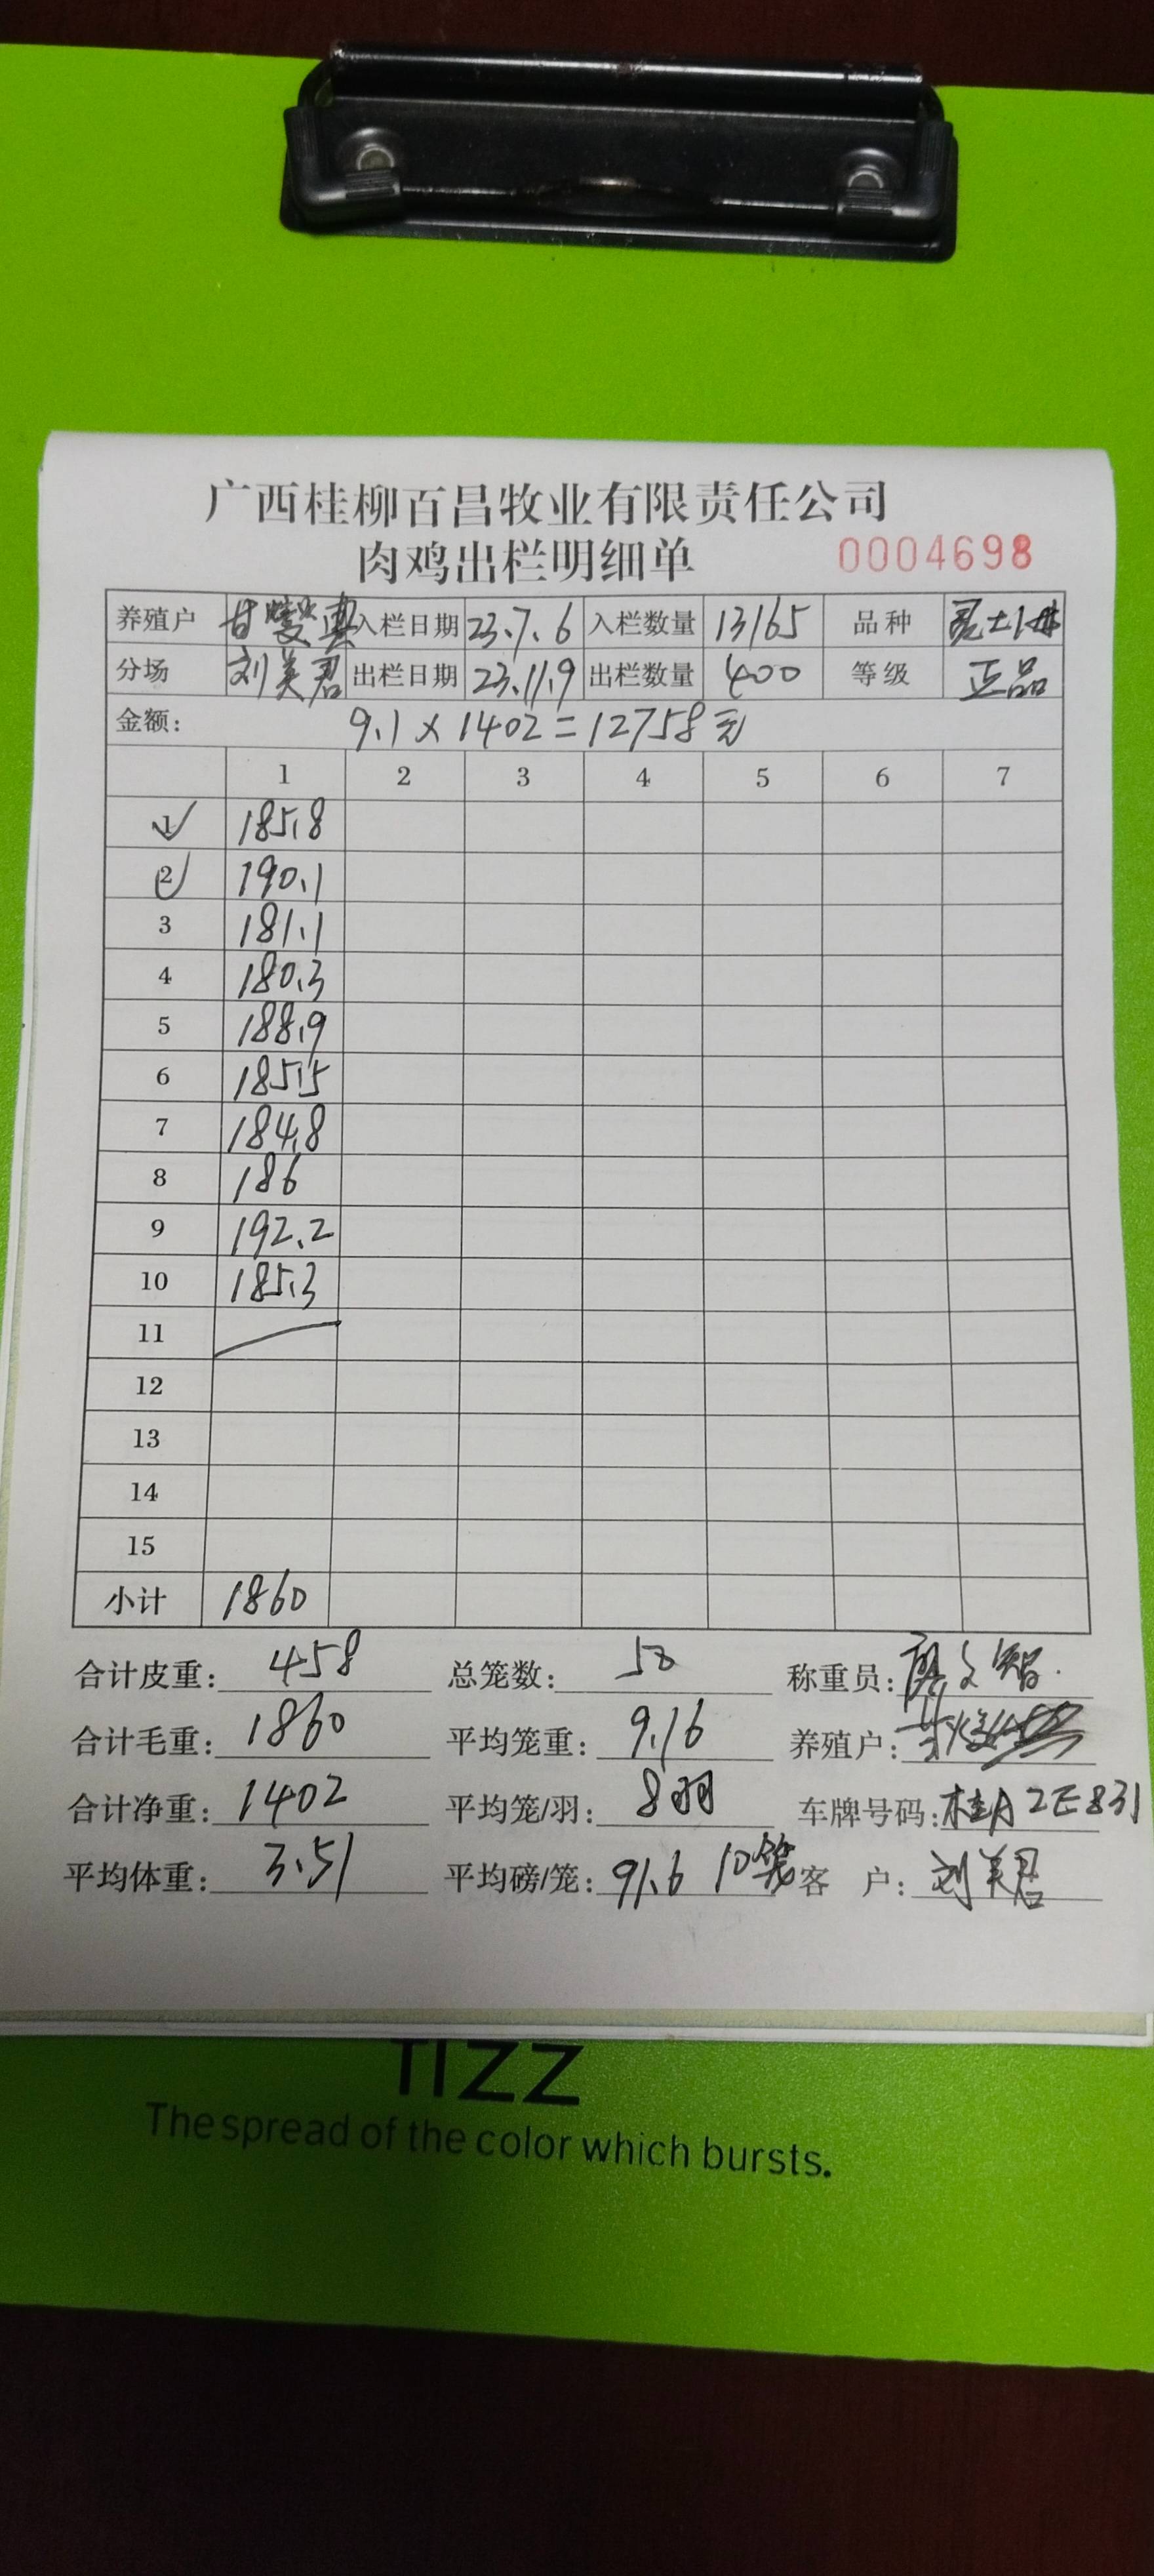 广西桂柳百昌牧业有限责任公司
肉鸡出栏明细单 0004698
养殖户 甘 入栏日期 23.7.6 入栏数量 13165 品种
分场 刘美君 出栏日期 23.11.9 出栏数量 400 等级 正品
金额: 9.1×1402=12758元
1 2 3 4 5 6 7
1 185.8
2 190.1
3 181.1
4 180.3
5 188.9
6 185.5
7 184.8
8 186
9 192.2
10 185.3
11
12
13
14
15
小计 1860
合计皮重: 458 总笼数: 50 称重员: 智
合计毛重: 1860 平均笼重: 9.16 养殖户:
合计净重: 1402 平均笼/羽: 8羽 车牌号码: 桂A2E831
平均体重: 3.51 平均磅/笼: 91.6 10笼 客 户: 刘美君
TIZZ
The spread of the color which bursts.